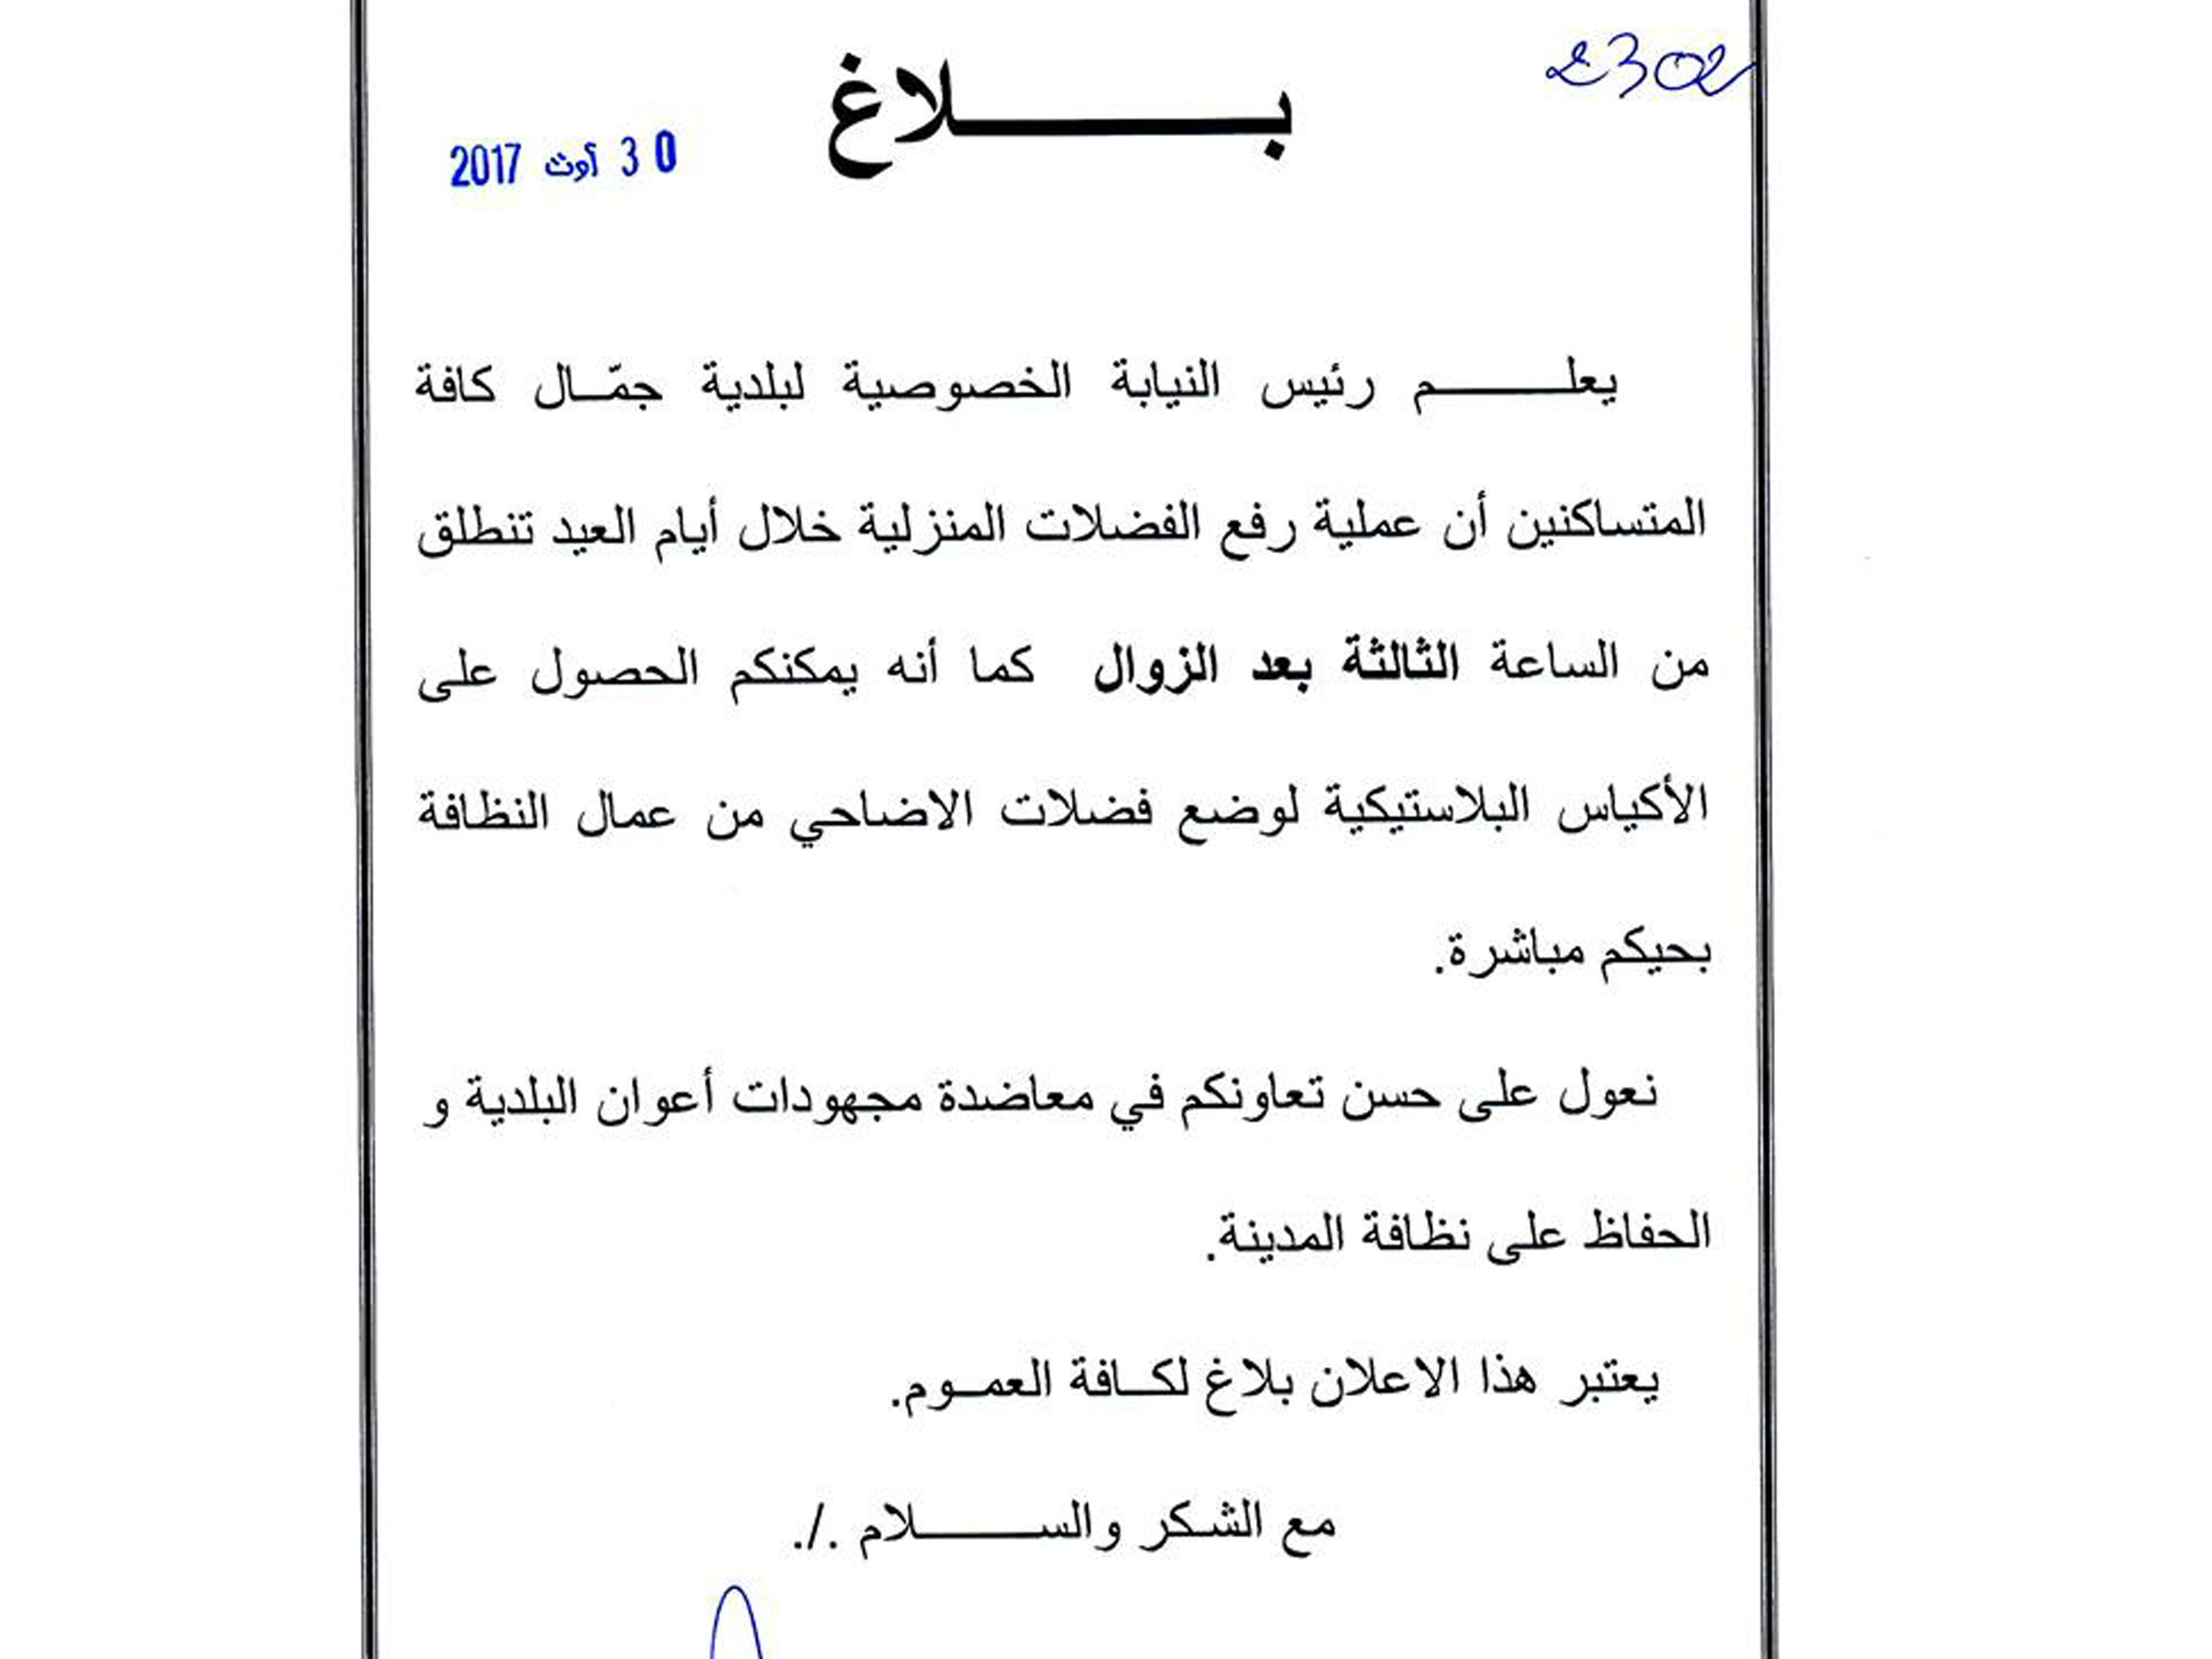 2302
بـــــــلاغ
30 أوت 2017
يعلـــــــم رئيس النيابة الخصوصية لبلدية جمّـال كافة
المتساكنين أن عملية رفع الفضلات المنزلية خلال أيام العيد تنطلق
من الساعة الثالثة بعد الزوال كما أنه يمكنكم الحصول على
الأكياس البلاستيكية لوضع فضلات الاضاحي من عمال النظافة
بحيكم مباشرة.
نعول على حسن تعاونكم في معاضدة مجهودات أعوان البلدية و
الحفاظ على نظافة المدينة.
يعتبر هذا الاعلان بلاغ لكـافة العمـوم.
مع الشكر والســـــــلام ./.